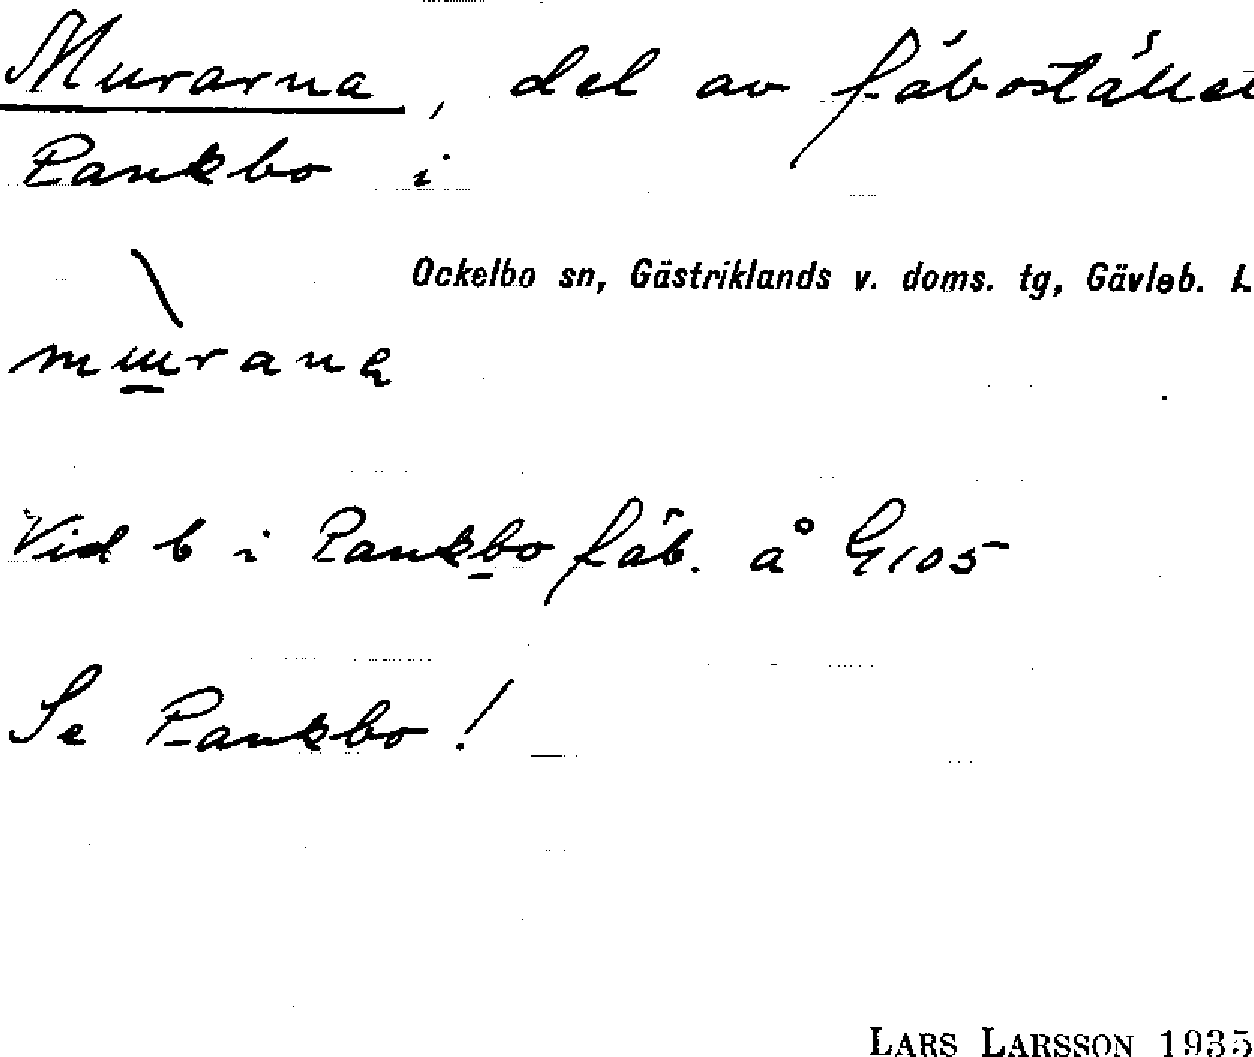 Murarna, del av fäbostället
Pankbo i
Ockelbo sn, Gästriklands v. doms. tg, Gävleb. L
Vid b i Pankbo fäb. å G105
Se Pankbo!
LARS LARSSON 1935